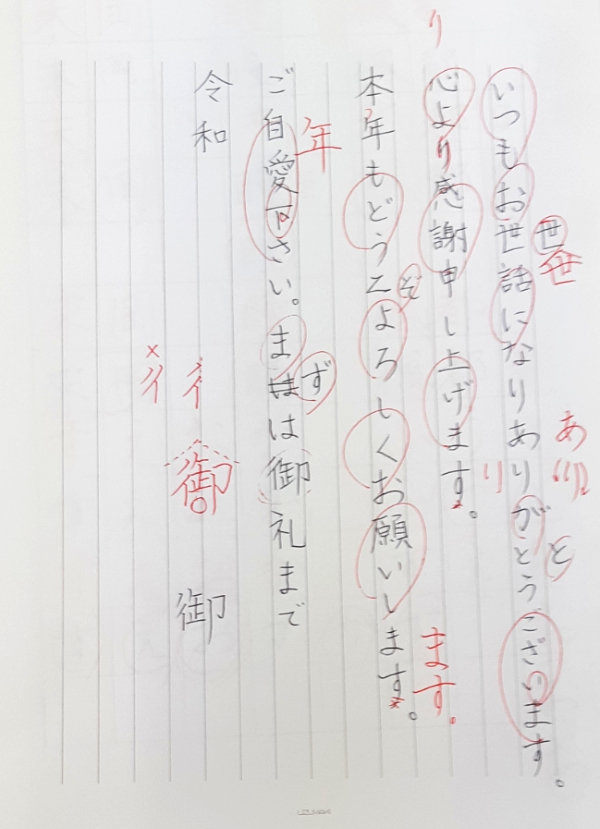 世
世
あ
り
と
いつもお世話になりありがとうございます。
り
り
心より感謝申し上げます。
ます。
ぞ
本年もどうぞよろしくお願いします。
年
ず
ご自愛下さい。まは御礼まで
令和
御
御
×